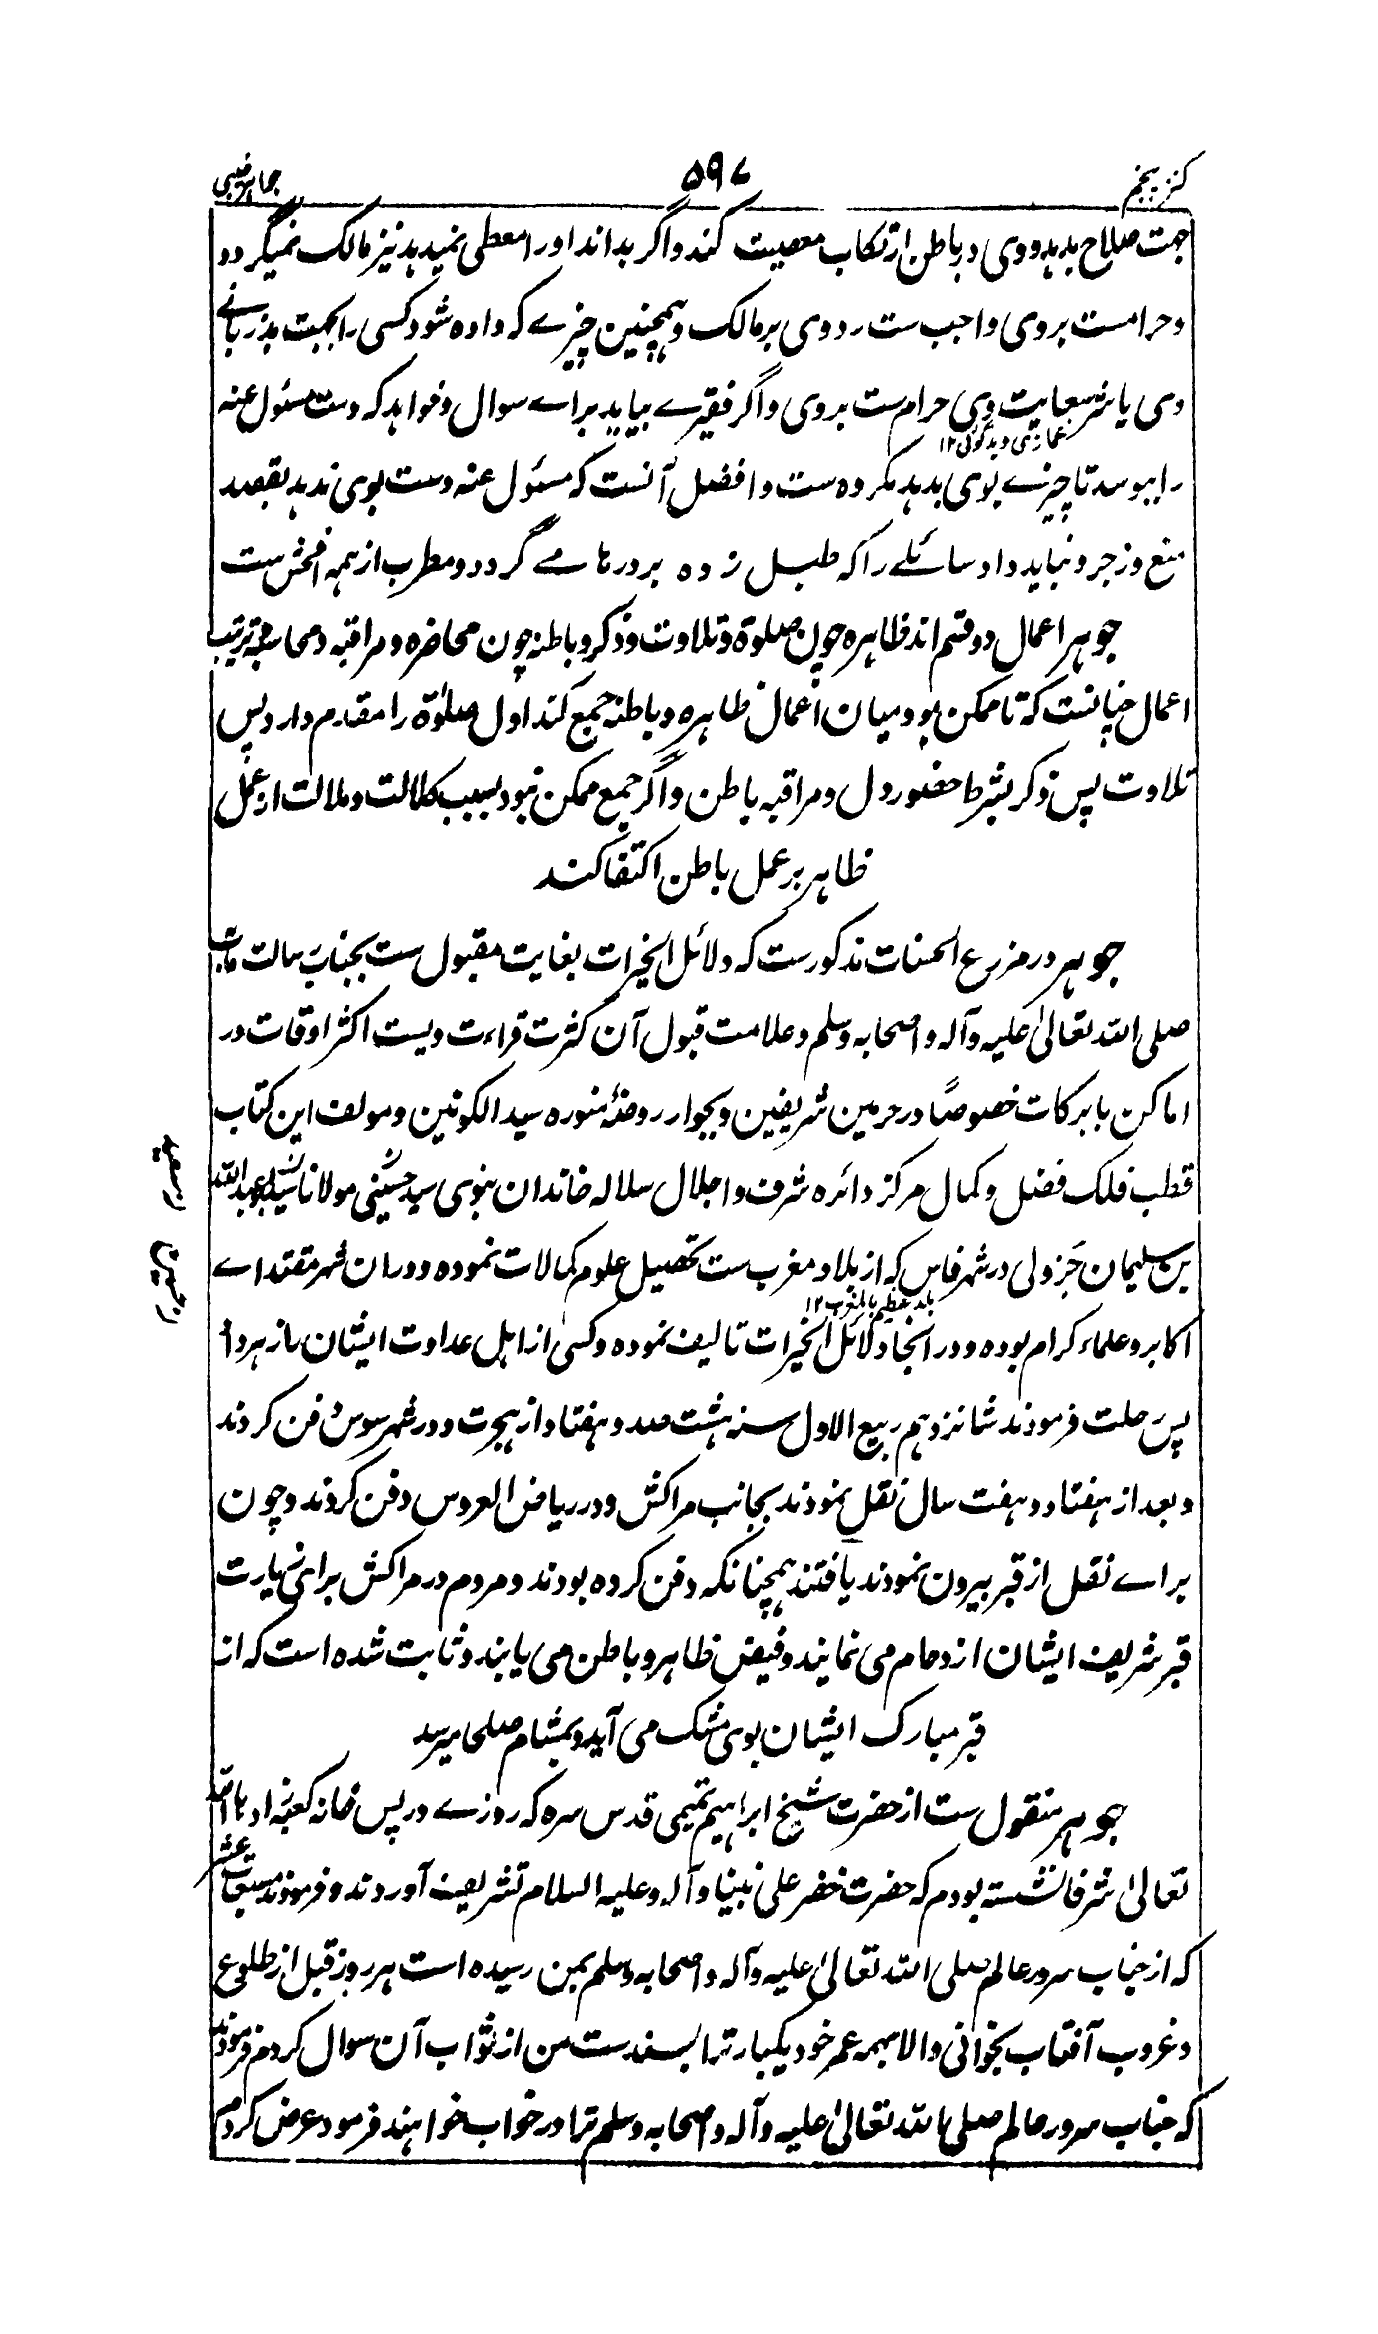 کنز پنجم
۵۹۷
جواهر غیبی
جهت صلاح بدهد ووی در باطن ارتکاب معصیت کند واگر بداند اورا معطی نمیدهد نیز مالک نمیگردد
وحرامست بروی واجب ست ردوی برمالک وہمچنین چیزے کہ داده شود کسی را بجهت بدزبانے
وی یا شر سعایت وی حرام ست بروی واگر فقیرے بیاید براے سوال وخواہد کہ دست مسئول عنہ
غمازی وبدگوئی ۱۲
را ببوسد تا چیزے بوی بدہد مکروه ست وافضل آنست کہ مسئول عنہ دست بوی ندہد بقصد
منع وزجر ونباید داد سائلے را کہ طبل زده بر درہا مے گردد ومطرب از ہمہ افحش ست
جوہر اعمال دو قسم اند ظاہره چون صلوة وتلاوت وذکر وباطنہ چون محاضره ومراقبہ ومحاسبہ ترتیب
اعمال چنانست کہ تا ممکن بود میان اعمال ظاہره وباطنہ جمع کند اول صلوٰة را مقدم دارد پس
تلاوت پس ذکر بشرط حضور دل ومراقبہ باطن واگر جمع ممکن نبود بسبب کلالت وملالت از عمل
ظاہر بر عمل باطن اکتفا کند
جوہر در مزرع الحسنات مذکورست کہ دلائل الخیرات بغایت مقبول ست بجناب رسالت مآب
صلی اللہ تعالیٰ علیہ وآلہ واصحابہ وسلم وعلامت قبول آن کثرت قراءت ویست اکثر اوقات در
اماکن با برکات خصوصًا در حرمین شریفین وبجوار روضۂ منوره سید الکونین ومولف این کتاب
قطب فلک فضل وکمال مرکز دائره شرف واجلال سلالہ خاندان نبوی سید حسینی مولانا سید ابو عبد اللہ
بن سلیمان جَزولی در شہر فاس کہ از بلاد مغرب ست تحصیل علوم کمالات نموده ودران شہر مقتداے
بلد عظیم بالمغرب ۱۲
اکابر وعلماء کرام بوده ودر انجا دلائل الخیرات تالیف نموده وکسی از اہل عداوت ایشان را زہر داد
پس رحلت فرمودند شانزدہم ربیع الاول سنہ ہشت صد وہفتاد از ہجرت ودر شہر سوس دفن کردند
وبعد از ہفتاد وہفت سال نقل نمودند بجانب مراکش ودر ریاض العروس دفن کردند وچون
براے نقل از قبر بیرون نمودند یافتند ہمچنانکہ دفن کرده بودند ومردم در مراکش برای زیارت
قبر شریف ایشان ازدحام می نمایند وفیض ظاہر وباطن می یابند وثابت شده است کہ از
قبر مبارک ایشان بوی مشک می آید وبمشام صلحا میرسد
جوہر منقول ست از حضرت شیخ ابراہیم تمیمی قدس سره کہ روزے در پس خانہ کعبہ زادہا اللہ
تعالیٰ شرفا نشستہ بودم کہ حضرت خضر علی نبینا وآلہ وعلیہ السلام تشریف آوردند وفرمودند مسبعات عشر
کہ از جناب سرور عالم صلی اللہ تعالیٰ علیہ وآلہ واصحابہ وسلم بمن رسیده است ہر روز قبل از طلوع
وغروب آفتاب بخوانی والا بہمہ عمر خود یکبار ترا بسندست من از ثواب آن سوال کردم فرمودند
کہ جناب سرور عالم صلی اللہ تعالیٰ علیہ وآلہ واصحابہ وسلم ترا در خواب خواہند فرمود عرض کردم